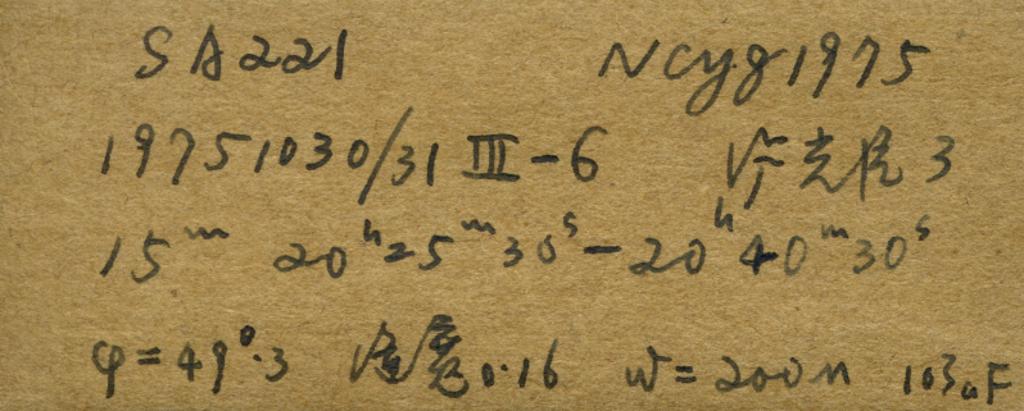 SA221 NCyg1975
19751030/31 III-6 光 3
15ᵐ 20ʰ25ᵐ30ˢ-20ʰ40ᵐ30ˢ
φ=49°.3 0.16 w=200 103aF